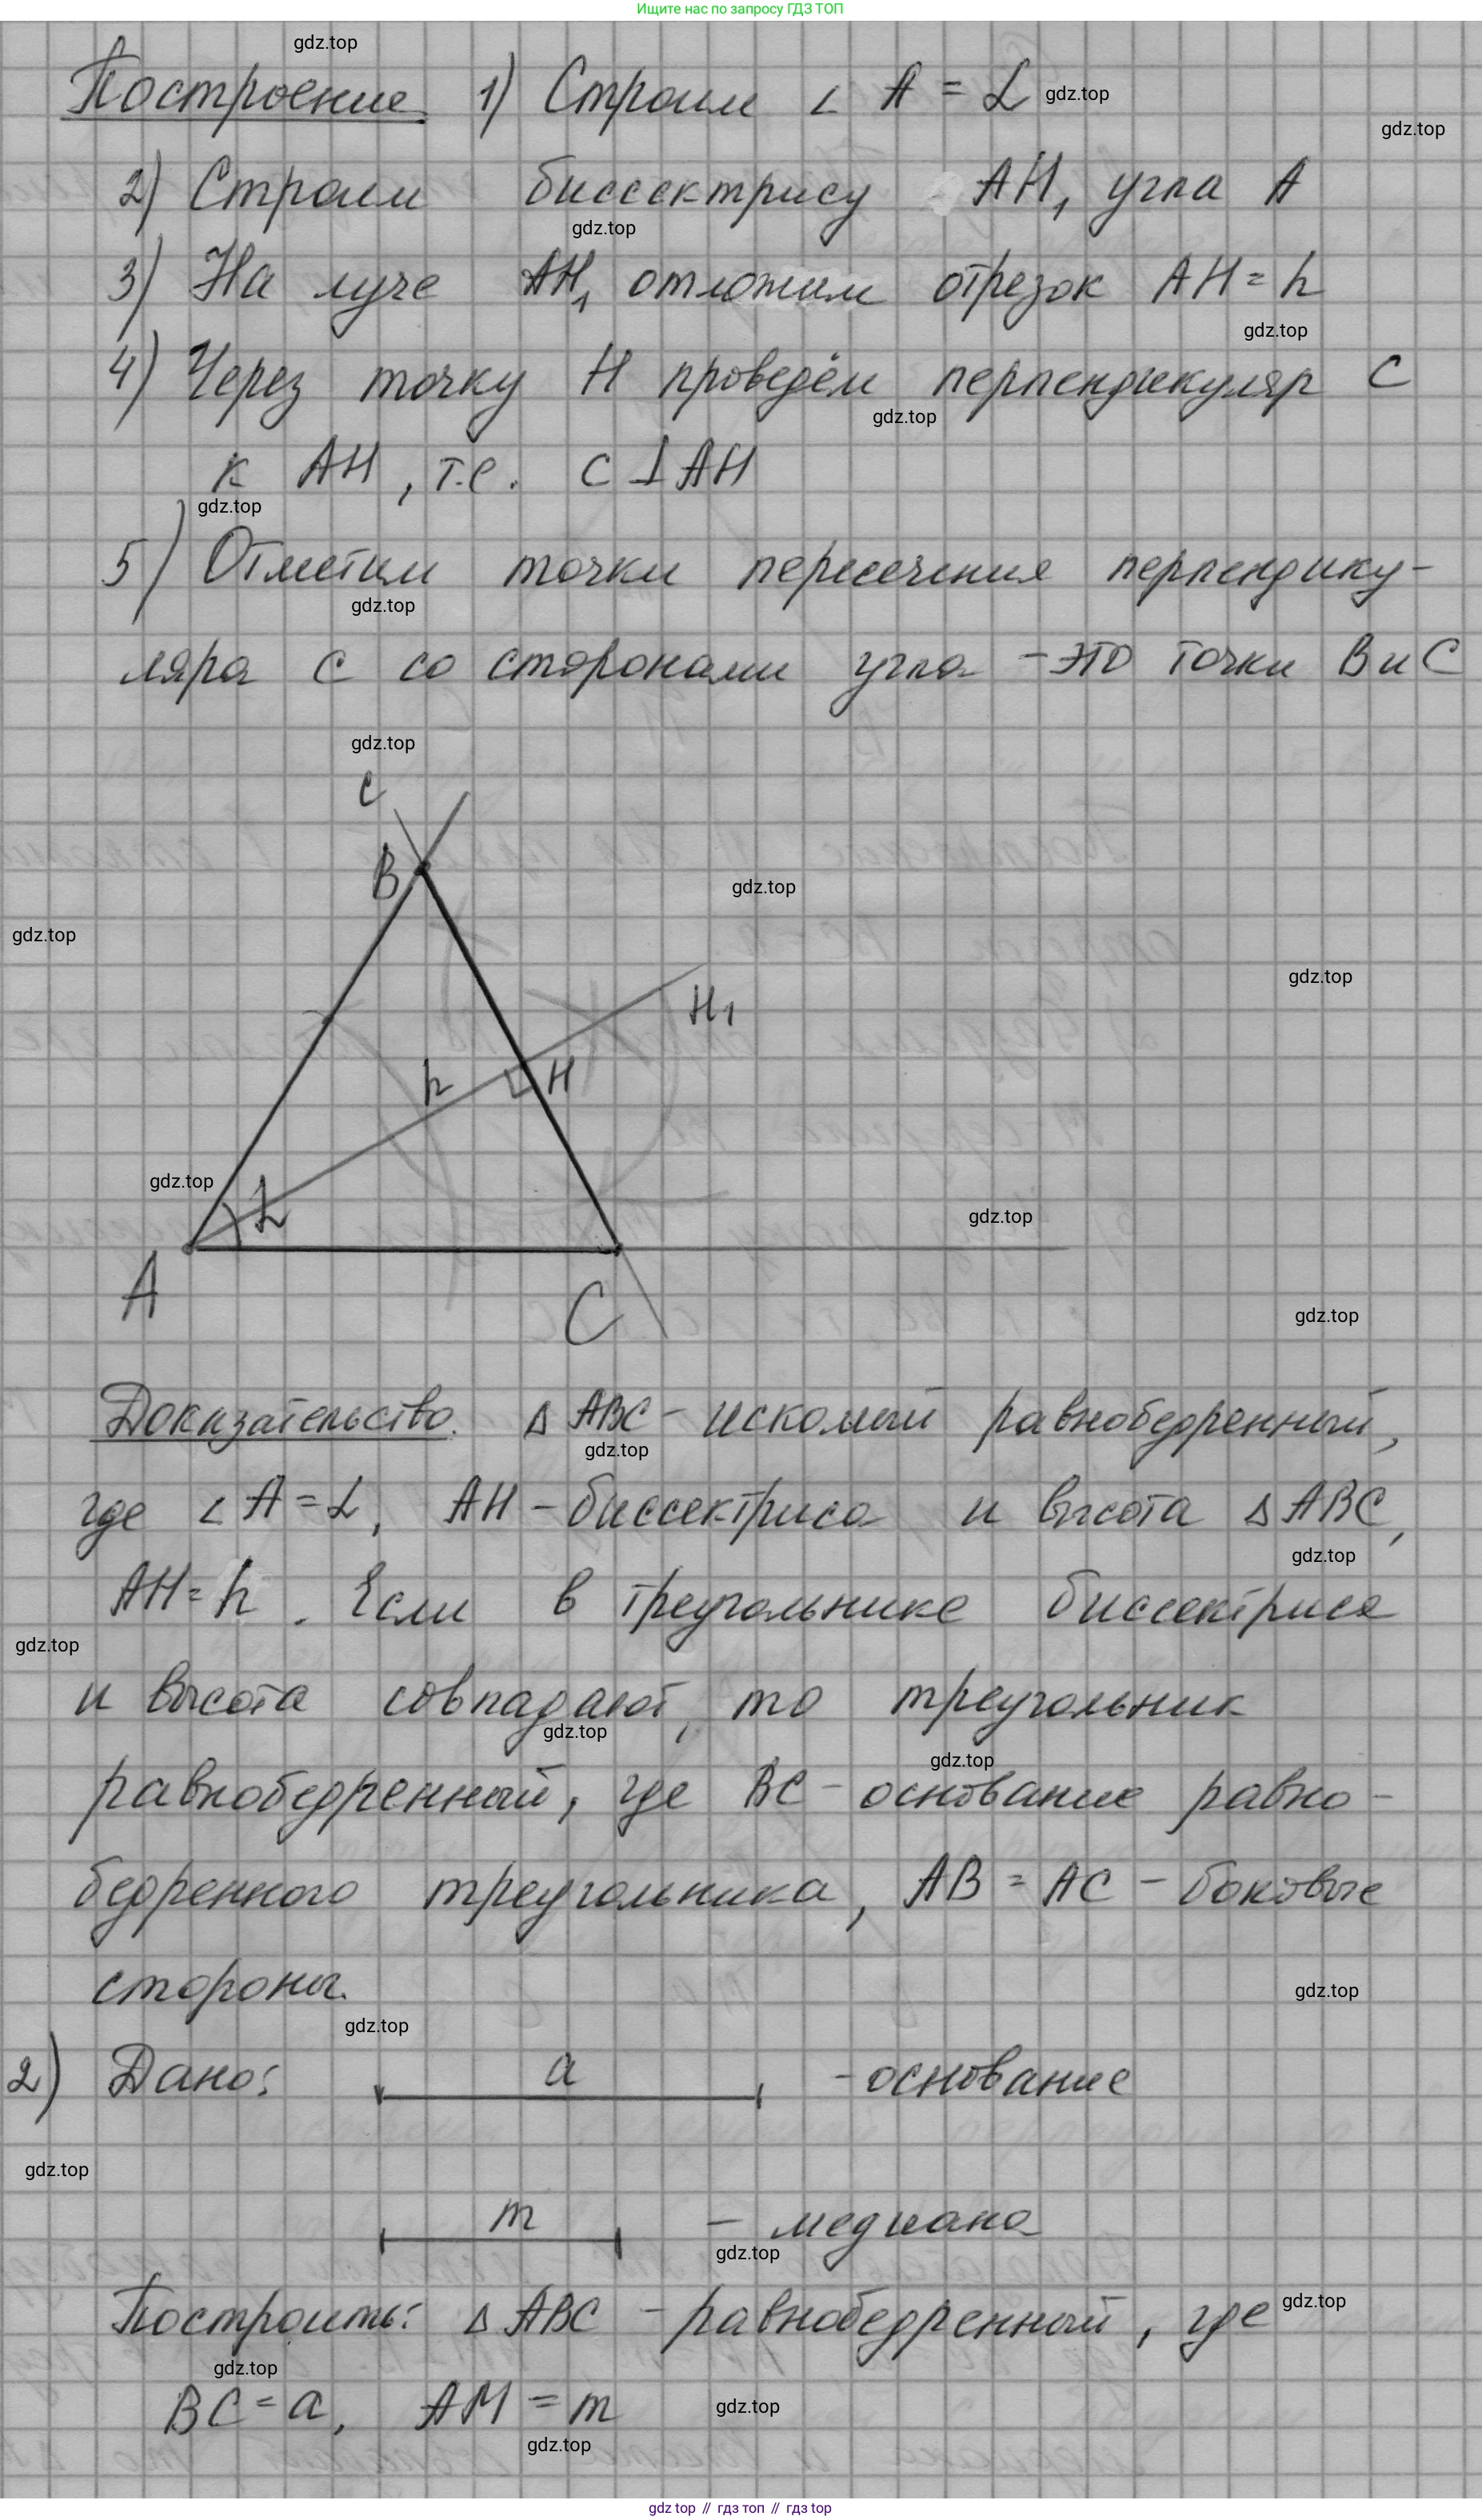 Ищите нас по запросу ГДЗ ТОП
gdz.top
Построение. 1) Строим ∠ A = α gdz.top
gdz.top
2) Строим биссектрису AH₁ угла A
gdz.top
3) На луче AH₁ отложим отрезок AH = h
gdz.top
4) Через точку H проведём перпендикуляр c
gdz.top
к AH, т.е. c ⊥ AH
gdz.top
5) Отметим точки пересечения перпендику-
gdz.top
ляра c со сторонами угла - это точки B и C
gdz.top
c
B
gdz.top
gdz.top
gdz.top
H₁
h
H
gdz.top
α
gdz.top
A
C
gdz.top
Доказательство. Δ ABC - искомый равнобедренный,
gdz.top
где ∠ A = α, AH - биссектриса и высота Δ ABC,
gdz.top
AH = h. Если в треугольнике биссектриса
gdz.top
и высота совпадают, то треугольник
gdz.top
gdz.top
равнобедренный, где BC - основание равно-
бедренного треугольника, AB = AC - боковые
стороны.
gdz.top
gdz.top
2) Дано: a - основание
gdz.top
m - медиана
gdz.top
Построить: Δ ABC - равнобедренный, где
gdz.top
gdz.top
BC = a, AM = m
gdz.top
gdz.top
gdz top // гдз топ // гдз top